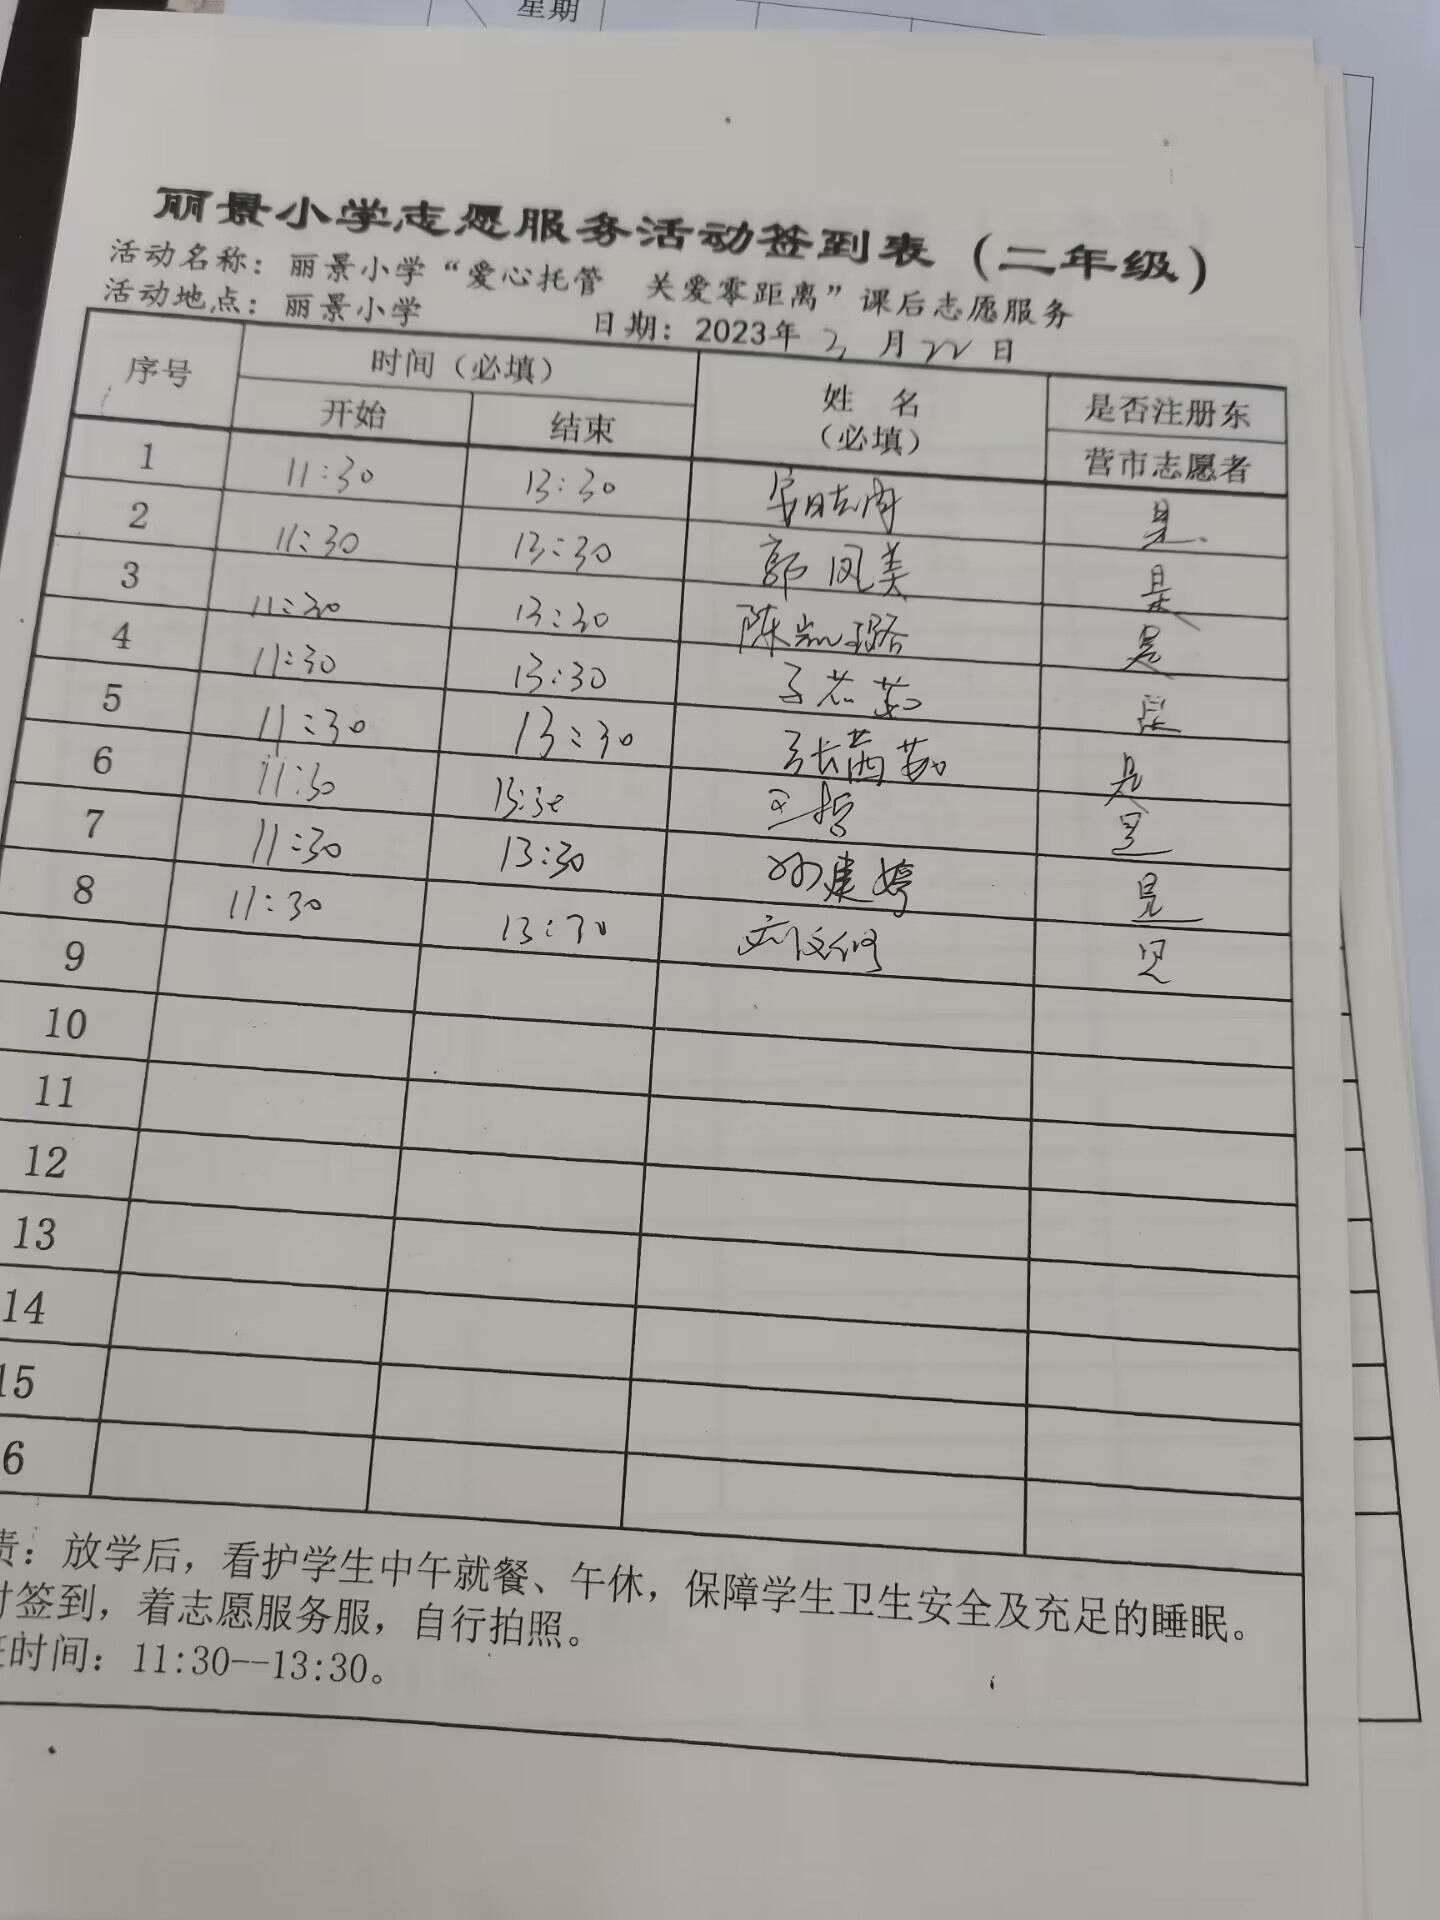 星期
丽景小学志愿服务活动签到表（二年级）
活动名称：丽景小学“爱心托管 关爱零距离”课后志愿服务
活动地点：丽景小学 日期：2023年3月22日
序号 时间（必填） 姓 名 是否注册东
开始 结束 （必填） 营市志愿者
1 11:30 13:30 是.
2 11:30 13:30 郭凤美 是
3 11:30 13:30 陈凯璐 是
4 11:30 13:30 是
5 11:30 13:30 张茜茹 是
6 11:30 13:30 王哲 是
7 11:30 13:30 孙建婷 是
8 11:30 13:30 是
9
10
11
12
13
14
15
6
责：放学后，看护学生中午就餐、午休，保障学生卫生安全及充足的睡眠。
时签到，着志愿服务服，自行拍照。
时间：11:30--13:30。